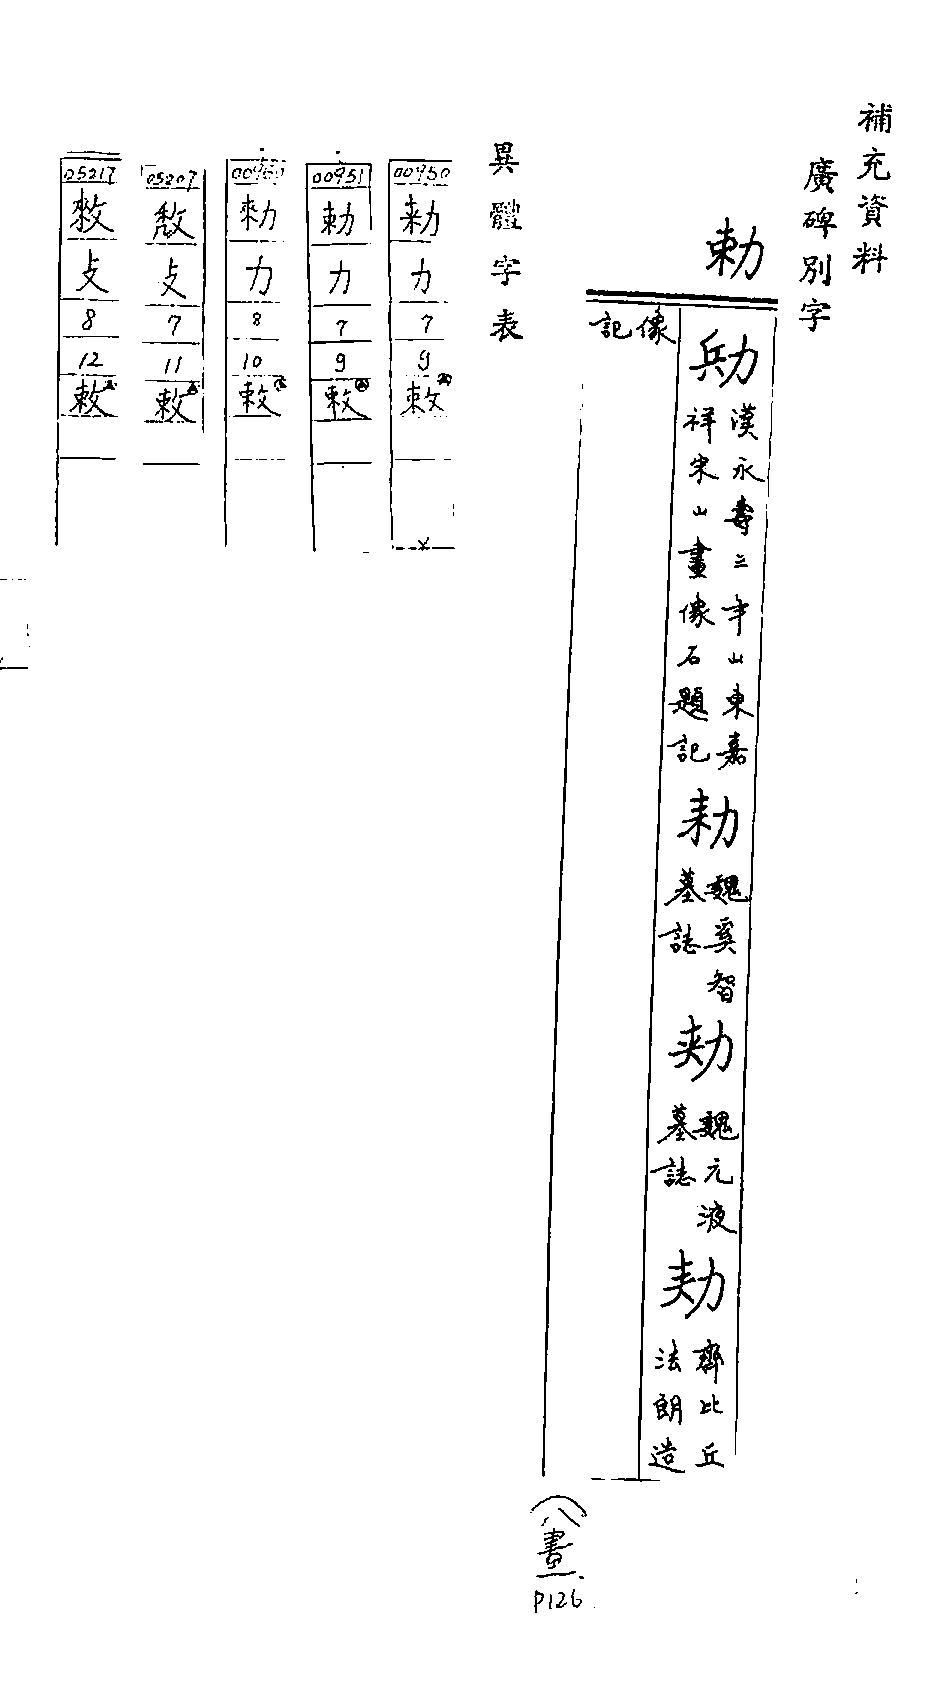 補充資料
廣碑別字
勅
勅
漢永壽三年山東嘉
祥宋山畫像石題記
勑
魏奚智
墓誌
勅
魏元液
墓誌
勅
齊比丘
法朗造
像
記
異體字表
00950
勑
力
7
9
敕
00951
勅
力
7
9
敕
00960
勑
力
8
10
敕
05207
攴
7
11
敕
05217
攴
8
12
敕
(八畫)
P126